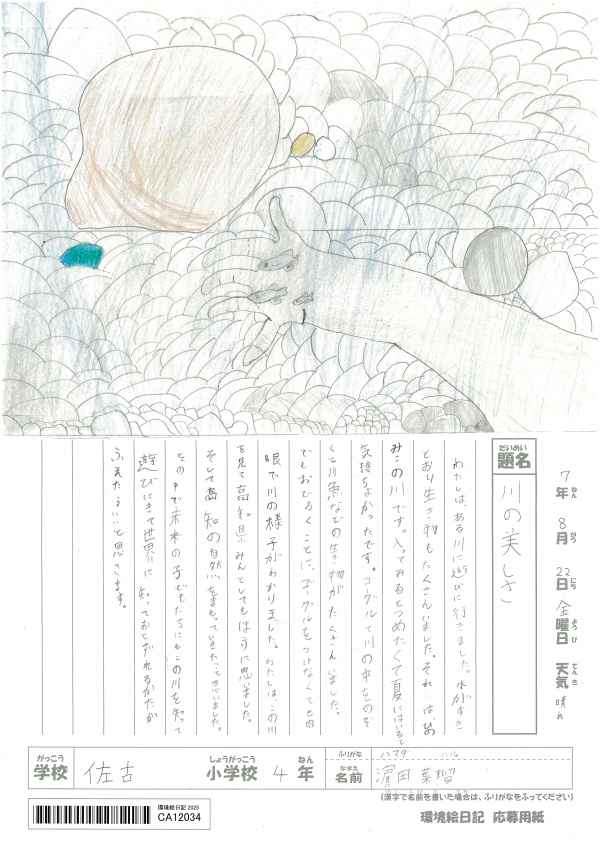 7年 8月 22日 金曜日 天気 晴れ
ねん がつ にち ようび てんき
だいめい
題名
川の美しさ
わたしは、ある川に遊びに行きました。水がすき
とおり生き物もたくさんいました。それは、
みこの川です。入ってみるとつめたくて夏にはいると
気持ちよかったです。ゴーグルで川の中をのぞ
くと川魚などの生き物がたくさんいました。
でもおどろくことに、ゴーグルをつけなくても肉
眼で川の様子がわかりました。わたしは、この川
を見て高知県みんとしてもほこりに思いました。
そして高知の自然をまもっていきたいと思いました。
その中で未来の子どもたちにもこの川を知って
遊びにきて世界に知っておとずれるかたが
ふえたらいいと思います。
がっこう しょうがっこう ねん
学校 佐古 小学校 4年
ふりがな ハマダ ハル
なまえ
名前 濵田 葉瑠
(漢字で名前を書いた場合は、ふりがなをふってください)
環境絵日記 2025
CA12034
環境絵日記 応募用紙